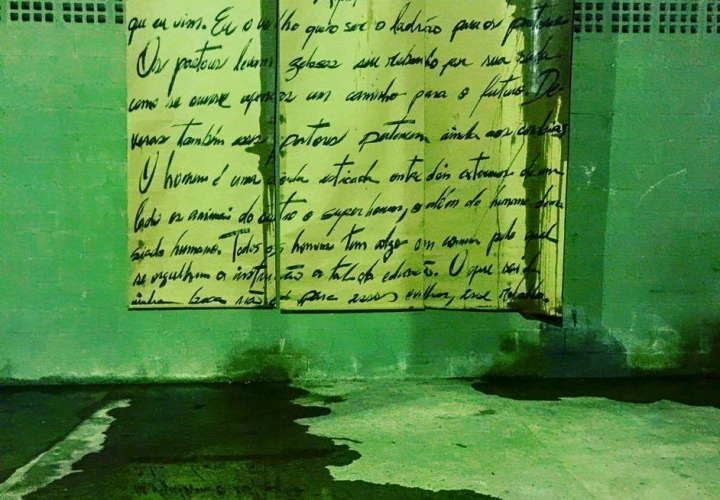 que eu vim. Eu o velho quero ser o ladrão para os pastores
Os pastores levam zelosos seu rebanho por sua
como se ouvesse apenas um caminho para o futuro. De
também esses pastores pertencem ainda aos
O homem é uma corda esticada entre dois extremos de um
lado os animais do outro o super homem, o além do humano dema
siado humano. Todos os homens tem algo em comum pelo qual
se orgulham a instrução a tal da edução. O que sai da
minha boca não é para essas ovelhas, esse